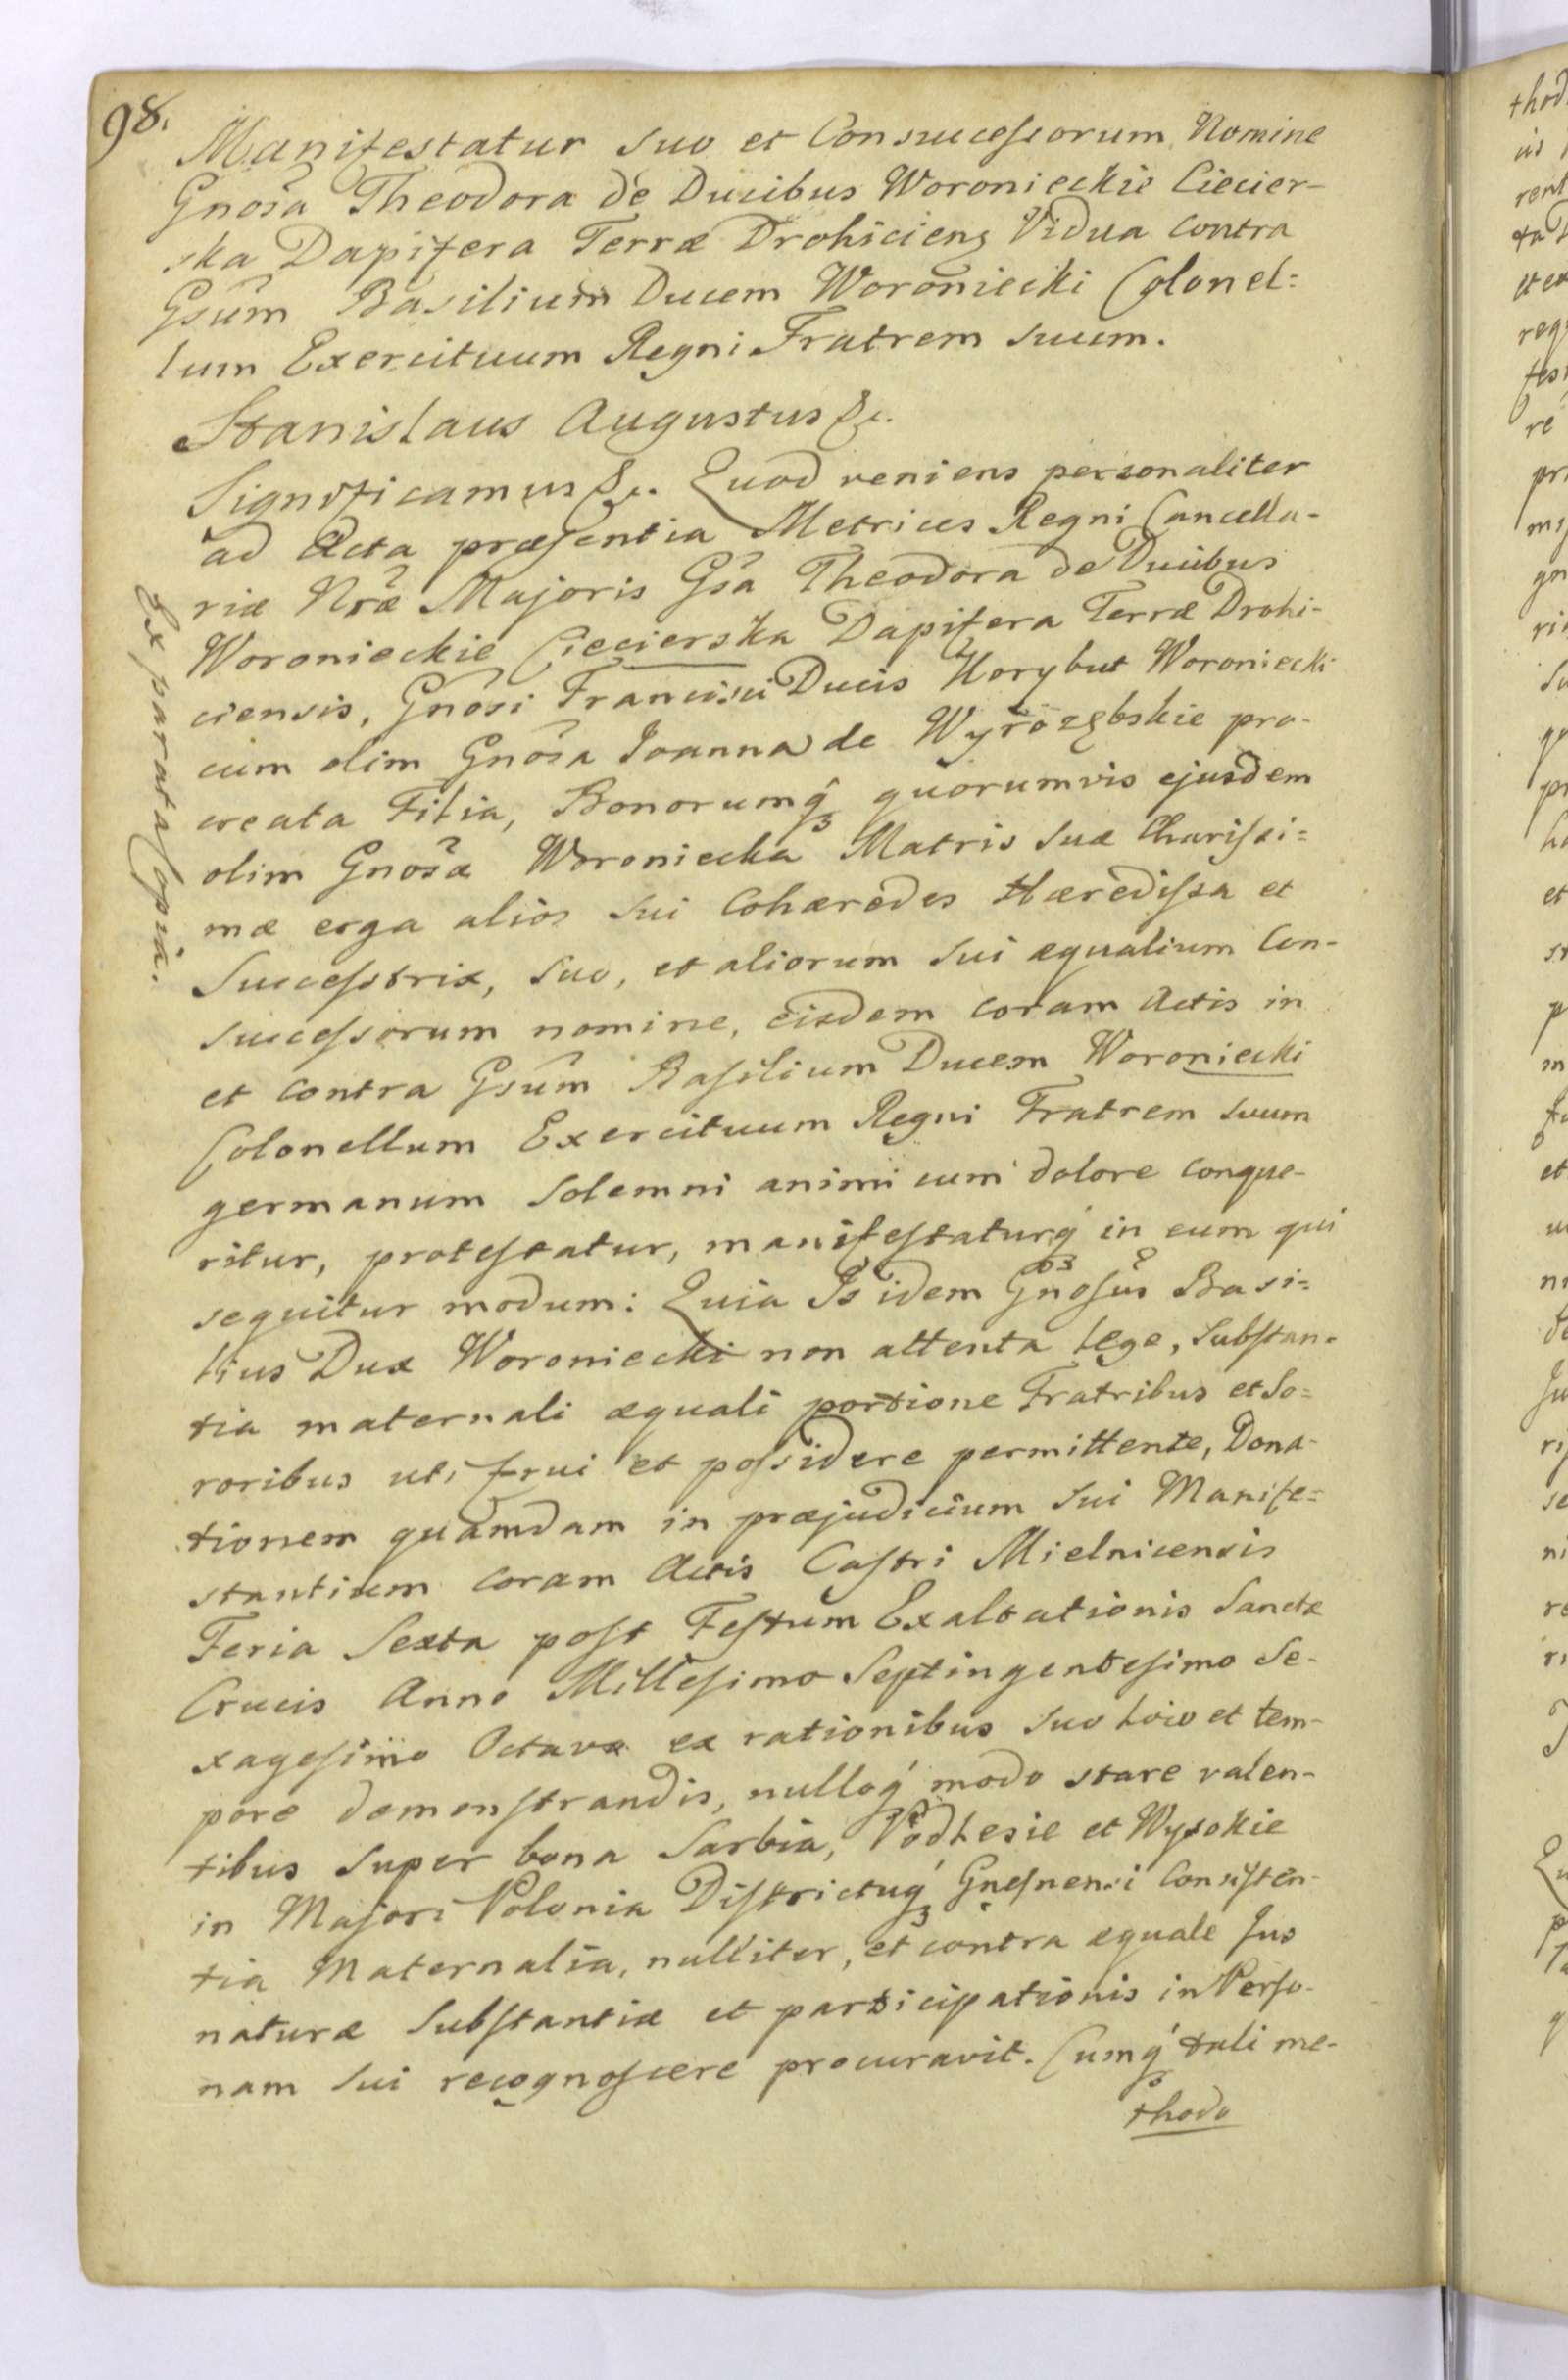 98.
Manifestatur suo et Consuccessorum Nomine
Gnosa Theodora de Ducibus Woronieckie Ciecier-
ska Dapifera Terræ Drohiciens Vidua contra
Gsum Basilium Ducem Woroniecki Colonel=
lum Exercituum Regni Fratrem suum.
Stanislaus Augustus &c.
Significamus &c. Quod veniens personaliter
ad Acta præsentia Metrices Regni Cancella-
riæ Nræ Majoris Gsa Theodora de Ducibus
Woronieckie Ciecierska Dapifera Terræ Drohi-
ciensis, Gnosi Francisci Ducis Korybut Woroniecki
cum olim Gnosa Joanna de Wyrozębskie pro-
creata Filia, Bonorumq́ quorumvis ejusdem
olim Gnosæ Woroniecka Matris suæ Charissi=
mæ erga alios sui Cohæredes Hæredissa et
Successtrix, suo, et aliorum sui æqualium Con-
successorum nomine, eisdem coram Actis in
et contra Gsum Basilium Ducem Woroniecki
Colonellum Exercituum Regni Fratrem suum
germanum solemni animi cum dolore conque-
ritur, protestatur, manifestaturq́ in eum qui
sequitur modum: Quia Is idem Gnosus Basi=
lius Dux Woroniecki non attenta lege, substan-
tia maternali æquali portione Fratribus et So=
roribus uti frui et possidere permittente, Dona-
tionem quamdam in præjudicium sui Manife=
stantium coram Actis Castri Mielnicensis
Feria Sexta post Festum Exaltationis Sanctæ
Crucis Anno Millesimo Septingentesimo Se-
xagesimo Octavo ex rationibus suo loco et tem-
pore demonstrandis, nulloq́ modo stare valen-
tibus super bona Sarbia, Podlesie et Wysokie
in Majori Polonia Districtuq́ Gnesnensi Consisten-
tia Maternalia, nulliter, et contra æquale Jus
naturæ substantiæ et participationis in Perso-
nam sui recognoscere procuravit. Cumq́ tali me-
thodo
Ex parata Copia.